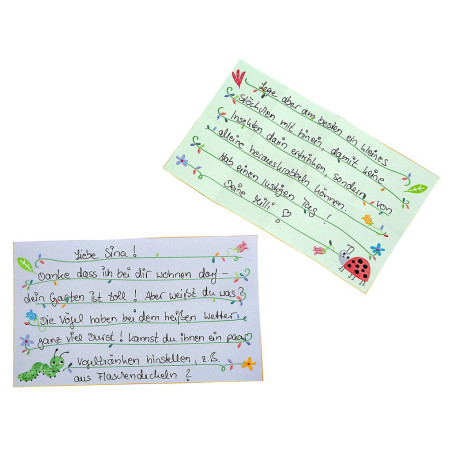 Liebe Sina!
Danke dass ich bei dir wohnen darf –
dein Garten ist toll! Aber weißt du was?
Die Vögel haben bei dem heißen Wetter
ganz viel Durst! Kannst du ihnen ein paar
Vogeltränken hinstellen, z.B.
aus Flaschendeckeln?
Lege aber am besten ein kleines
Stöckchen mit hinein, damit keine
Insekten darin ertrinken, sondern von
alleine herauskrabbeln können.
Hab einen lustigen Tag!
Deine Lilli